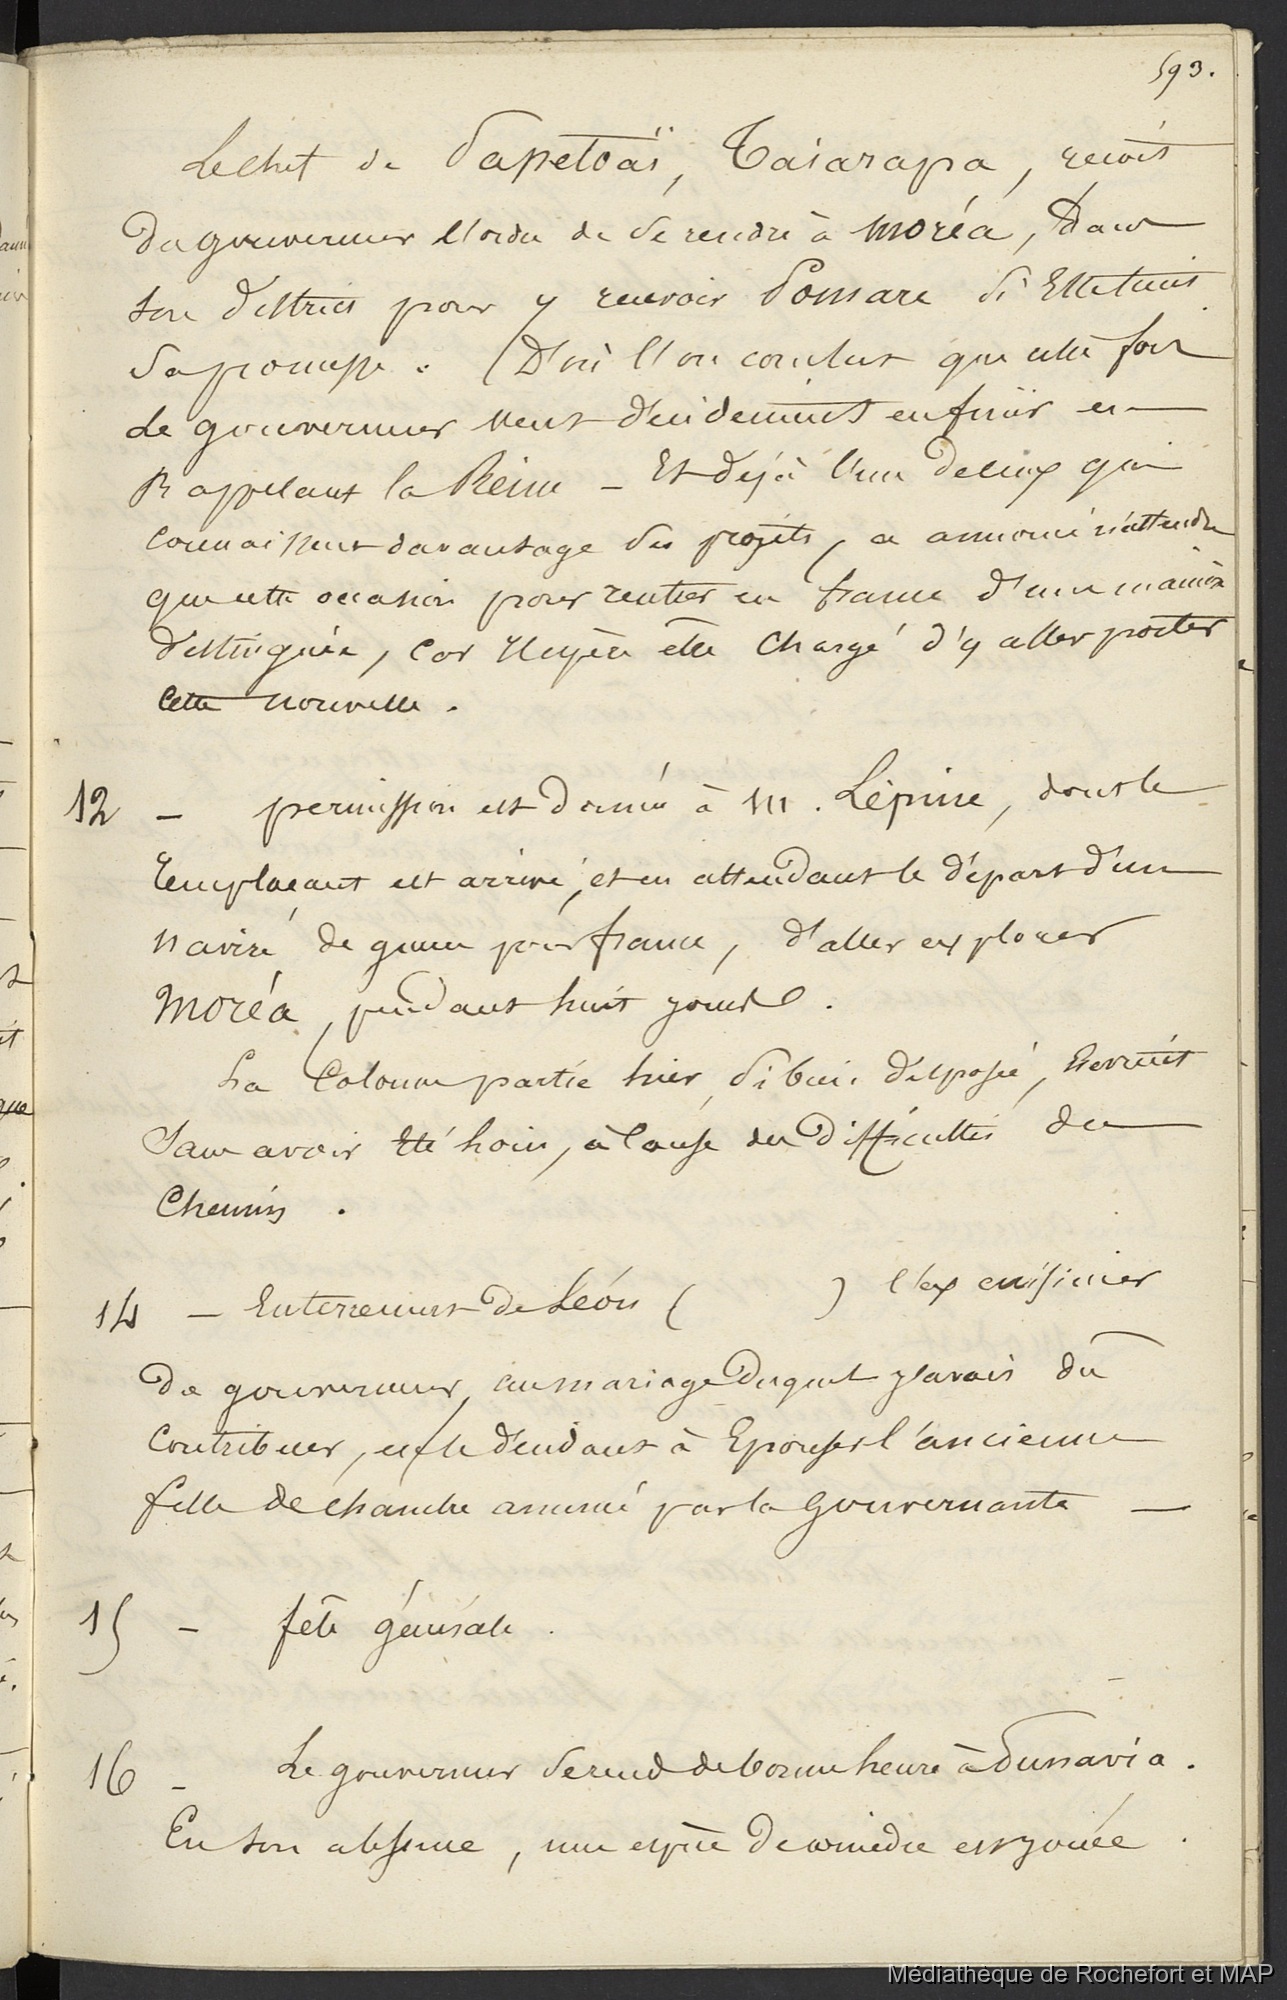 593.
Le chef de Papetoaï, Taiarapa, reçoit
du gouverneur l'ordre de se rendre à Moréa, dans
son district pour y recevoir Pomare si Elle tient
sa promesse. (D'où l'on conclut que cette fois
le gouverneur veut évidemment en finir en
Rappelant la Reine _ Et déjà l'un de ceux qui
connaissent davantage ses projets, a annoncé n'attendre
que cette occasion pour rentrer en france d'une manière
distinguée, car Il espère être chargé d'y aller porter
cette nouvelle.
12 _ permission est donnée à M. Lépine, dont le
remplaçant est arrivé, et en attendant le départ d'un
navire de guerre pour france, d'aller explorer
Moréa, pendant huit jours.
La Colonne partie hier, si bien disposée, revient
sans avoir été loin, à cause des difficultés des
chemins.
14 _ Enterrement de Léon ( ) l'ex cuisinier
du gouverneur, au mariage duquel j'avais dû
contribuer, en le à Epouser l'ancienne
fille de chambre amenée par la gouvernante _
15 _ fête générale.
16 _ Le gouverneur se rend de bonne heure à Punavia.
En son absence, une espèce de comédie est jouée.
Médiathèque de Rochefort et MAP